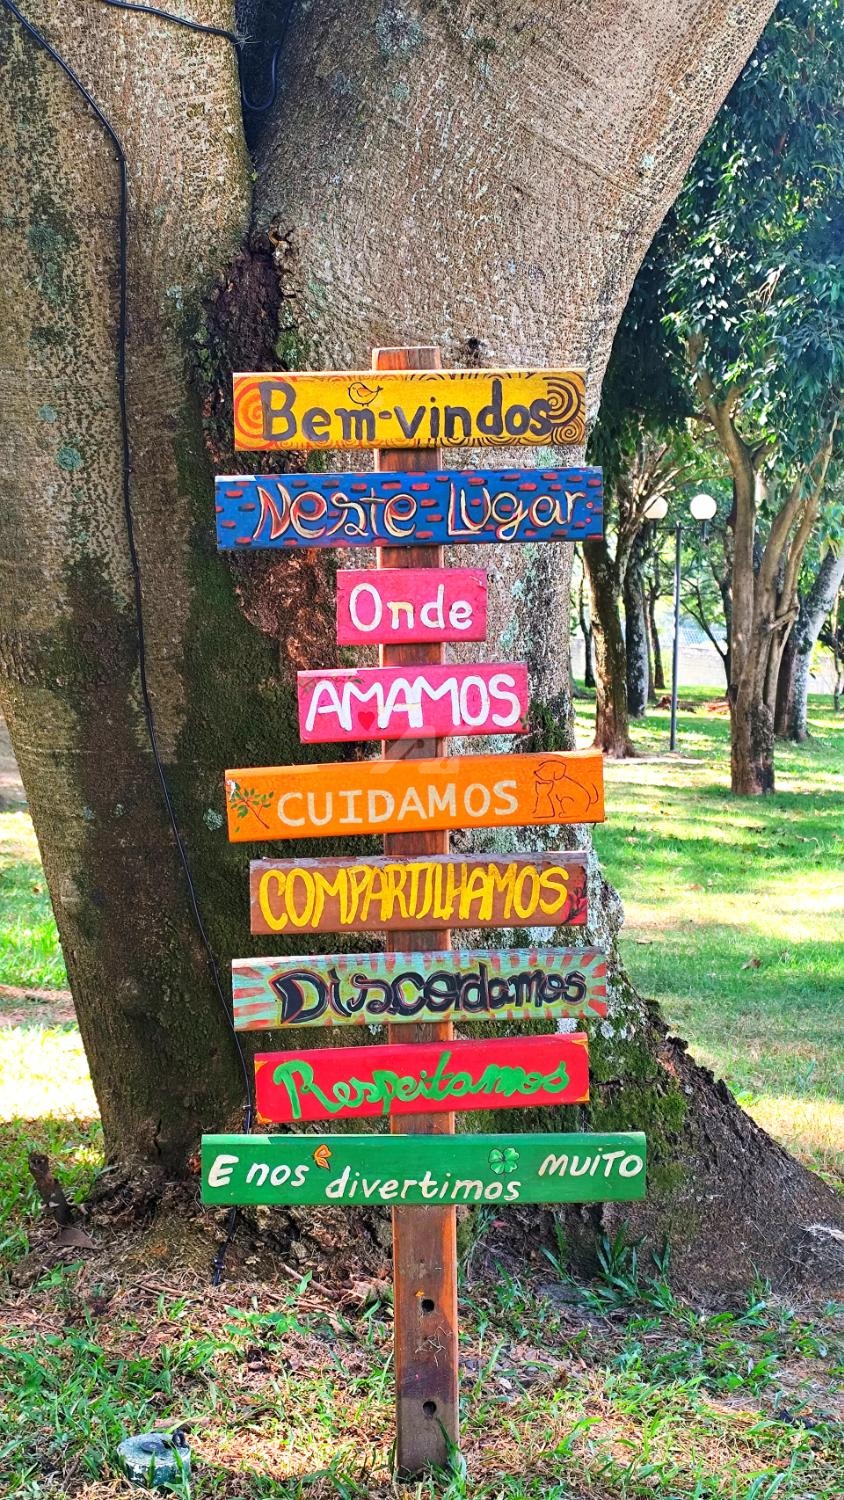 Bem-vindos
Neste Lugar
Onde
AMAMOS
CUIDAMOS
COMPARTILHAMOS
Discordamos
Respeitamos
E nos divertimos MUITO